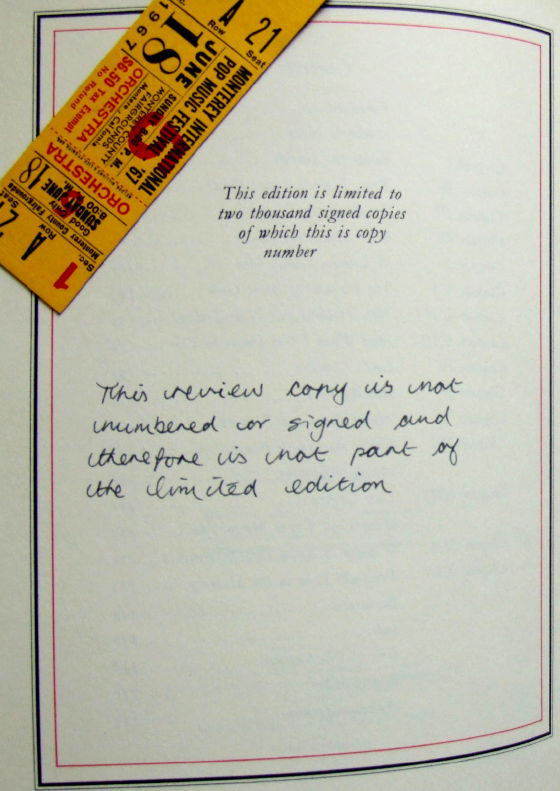 Sec.
Row
A
21
Seat
MONTEREY INTERNATIONAL
POP MUSIC FESTIVAL
JUNE
18
1967
SUNDAY 8:00 P. M.
'67
MONTEREY COUNTY
FAIRGROUNDS
Monterey, California
ORCHESTRA
$6.50 Tax Exempt
No Refund
ORCHESTRA
SUNDAY JUNE 18
8:00 P. M.
Good Only
Monterey County Fairgrounds
Sec.
1
Row
A
Seat
This edition is limited to
two thousand signed copies
of which this is copy
number
This review copy is not
numbered or signed and
therefore is not part of
the limited edition